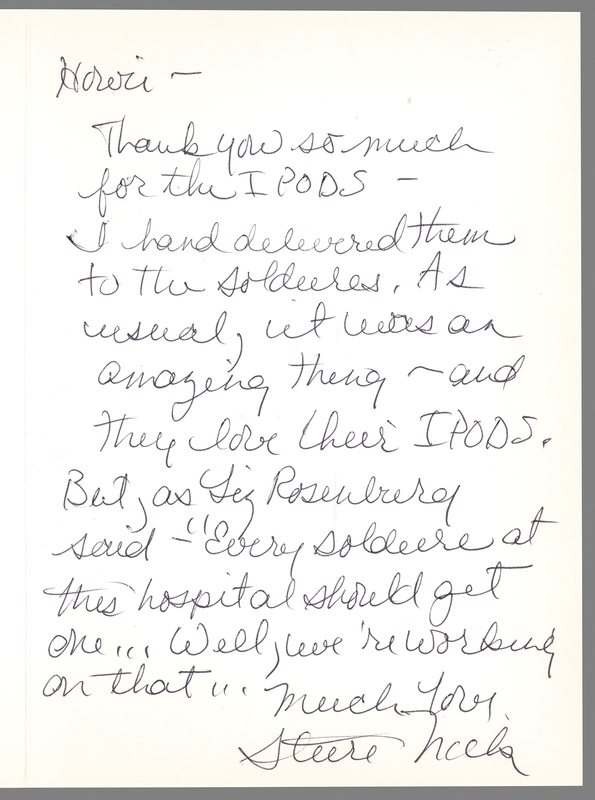 Howie —
Thank you so much
for the I PODS —
I hand delivered them
to the soldiers. As
usual, it was an
amazing thing — and
they love their IPODS.
But, as Liz Rosenberg
said — "Every soldier at
this hospital should get
one... Well, we're working
on that... Much Love,
Stevie Nicks